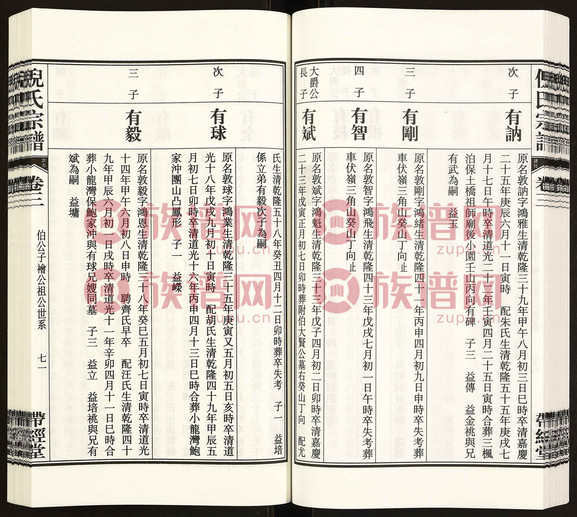 次子
有訥
原名敦訥字鴻雅生清乾隆三十九年甲午八月初三日巳時卒清嘉慶
二十五年庚辰六月十一日寅時 配朱氏生清乾隆五十五年庚戌七
月十七日午時卒清道光二十二年壬寅四月二十五日寅時合葬三楓
泊保土橋祖師廟後小園壬山丙向有碑 子三 益傳 益金祧與兄
有武為嗣 益玉
三子
有剛
原名敦剛字鴻緒生清乾隆四十一年丙申四月初九日申時卒失考葬
車伏嶺三角山癸山丁向止
四子
有智
原名敦智字鴻飛生清乾隆四十三年戊戌七月初一日午時卒失考葬
車伏嶺三角山癸山丁向止
大爵公
長子
有斌
原名敦斌字鴻魁生清乾隆三十三年戊子四月初二日卯時卒清嘉慶
二十三年戊寅正月初七日卯時葬附伯大賢公墓右癸山丁向 配尤
氏生清乾隆五十八年癸丑四月十二日卯時葬卒失考 子一 益培
係立弟有毅次子為嗣
次子
有球
原名敦球字鴻業生清乾隆三十五年庚寅又五月初五日亥時卒清道
光十八年戊戌九月初十日寅時 配胡氏生清乾隆四十九年甲辰五
月初七日寅時卒清道光十六年丙申四月十三日巳時合葬小龍灣鮑
家沖團山凸鳳形 子一 益嶸
三子
有毅
原名敦毅字鴻恩生清乾隆三十八年癸巳五月初七日寅時卒清道光
十四年甲午六月初八日申時 聘齊氏早卒 配汪氏生清乾隆四十
九年甲辰六月初一日戌時卒清道光十一年辛卯四月十一日巳時合
葬小龍灣保鮑家沖與有球兄嫂同墓 子三 益立 益培祧與兄有
斌為嗣 益墉
倪氏宗譜
卷二
伯公子禬公祖公世系 七一
帶經堂
族譜网
zupu.cn